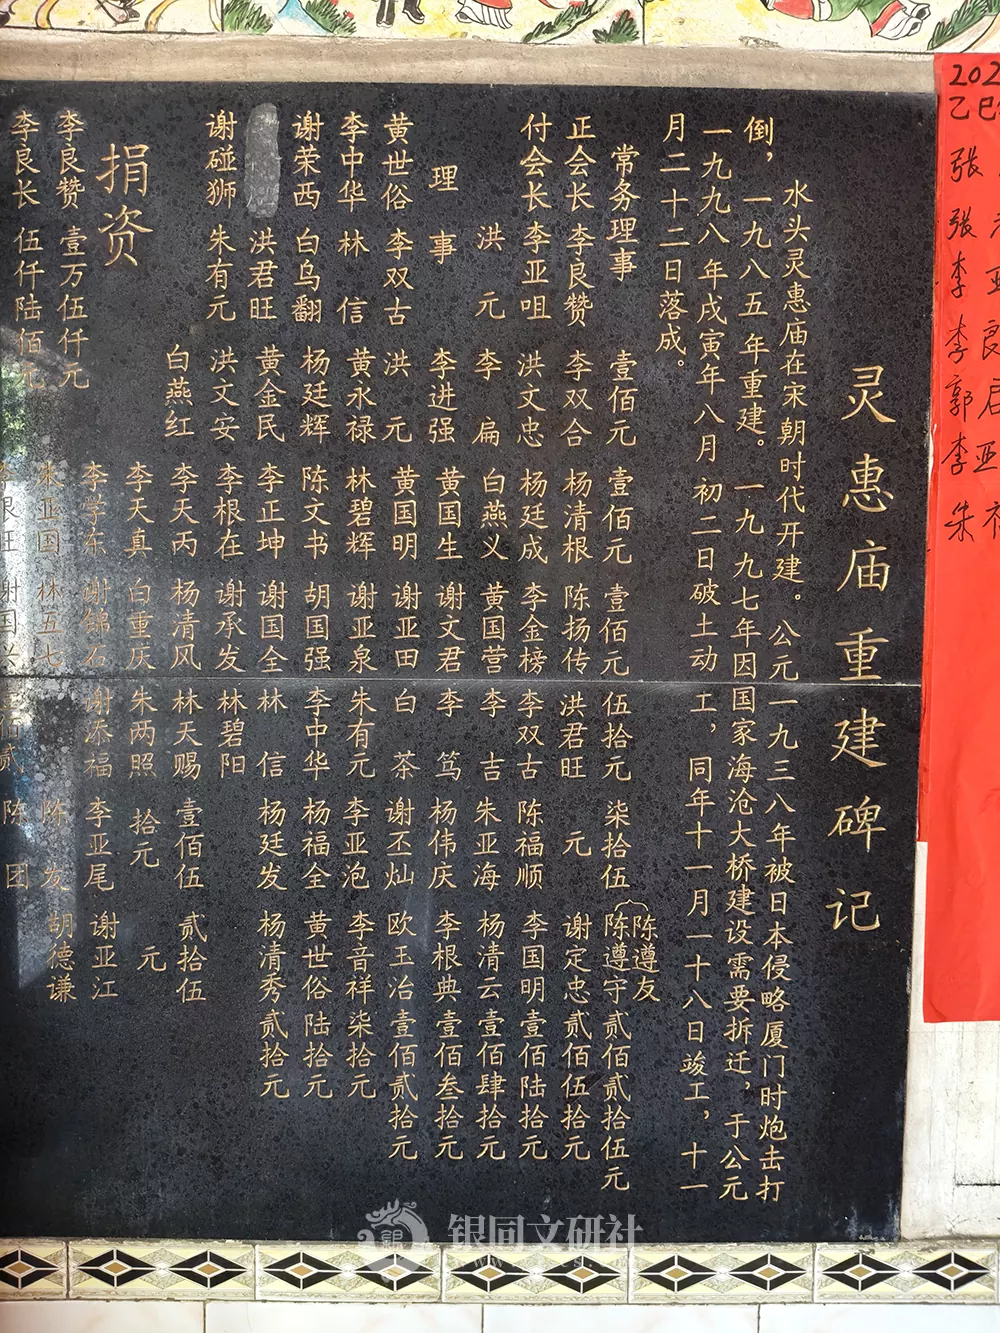 202
乙巳
張
張
李 亚
李 良
郭
李 亚
朱
灵惠庙重建碑记
水头灵惠庙在宋朝时代开建。公元一九三八年被日本侵略厦门时炮击打
倒，一九八五年重建。一九九七年因国家海沧大桥建设需要拆迁，于公元
一九九八年戊寅年八月初二日破土动工，同年十一月一十八日竣工，十一
月二十二日落成。
陈遵友
常务理事 壹佰元 壹佰元 壹佰元 伍拾元 柒拾伍 陈遵守贰佰贰拾伍元
正会长李良赞 李双合 杨清根 陈扬传 洪君旺 元 谢定忠贰佰伍拾元
付会长李亚咀 洪文忠 杨廷成 李金榜 李双古 陈福顺 李国明壹佰陆拾元
洪元 李扁 白燕义 黄国营 李吉 朱亚海 杨清云壹佰肆拾元
理事 李进强 黄国生 谢文君 李笃 杨伟庆 李根典壹佰叁拾元
黄世俗 李双古 洪元 黄国明 谢亚田 白茶 谢丕灿 欧玉治壹佰贰拾元
李中华 林信 黄永禄 林碧辉 谢亚泉 朱有元 李亚泡 李音祥柒拾元
谢荣西 白乌翻 杨廷辉 陈文书 胡国强 李中华 杨福全 黄世俗陆拾元
洪君旺 黄金民 李正坤 谢国全 林信 杨廷发 杨清秀贰拾元
谢碰狮 朱有元 洪文安 李根在 谢承发 林碧阳
白燕红 李天丙 杨清风 林天赐 壹佰伍 贰拾伍
捐资 李天真 白重庆 朱两照 拾元 元
李学东 谢锦石 谢添福 李亚尾 谢亚江
李良赞 壹万伍仟元 朱亚国 林五七 陈发 胡德谦
李良长 伍仟陆佰元 谢国兴 陈团
银同文研社